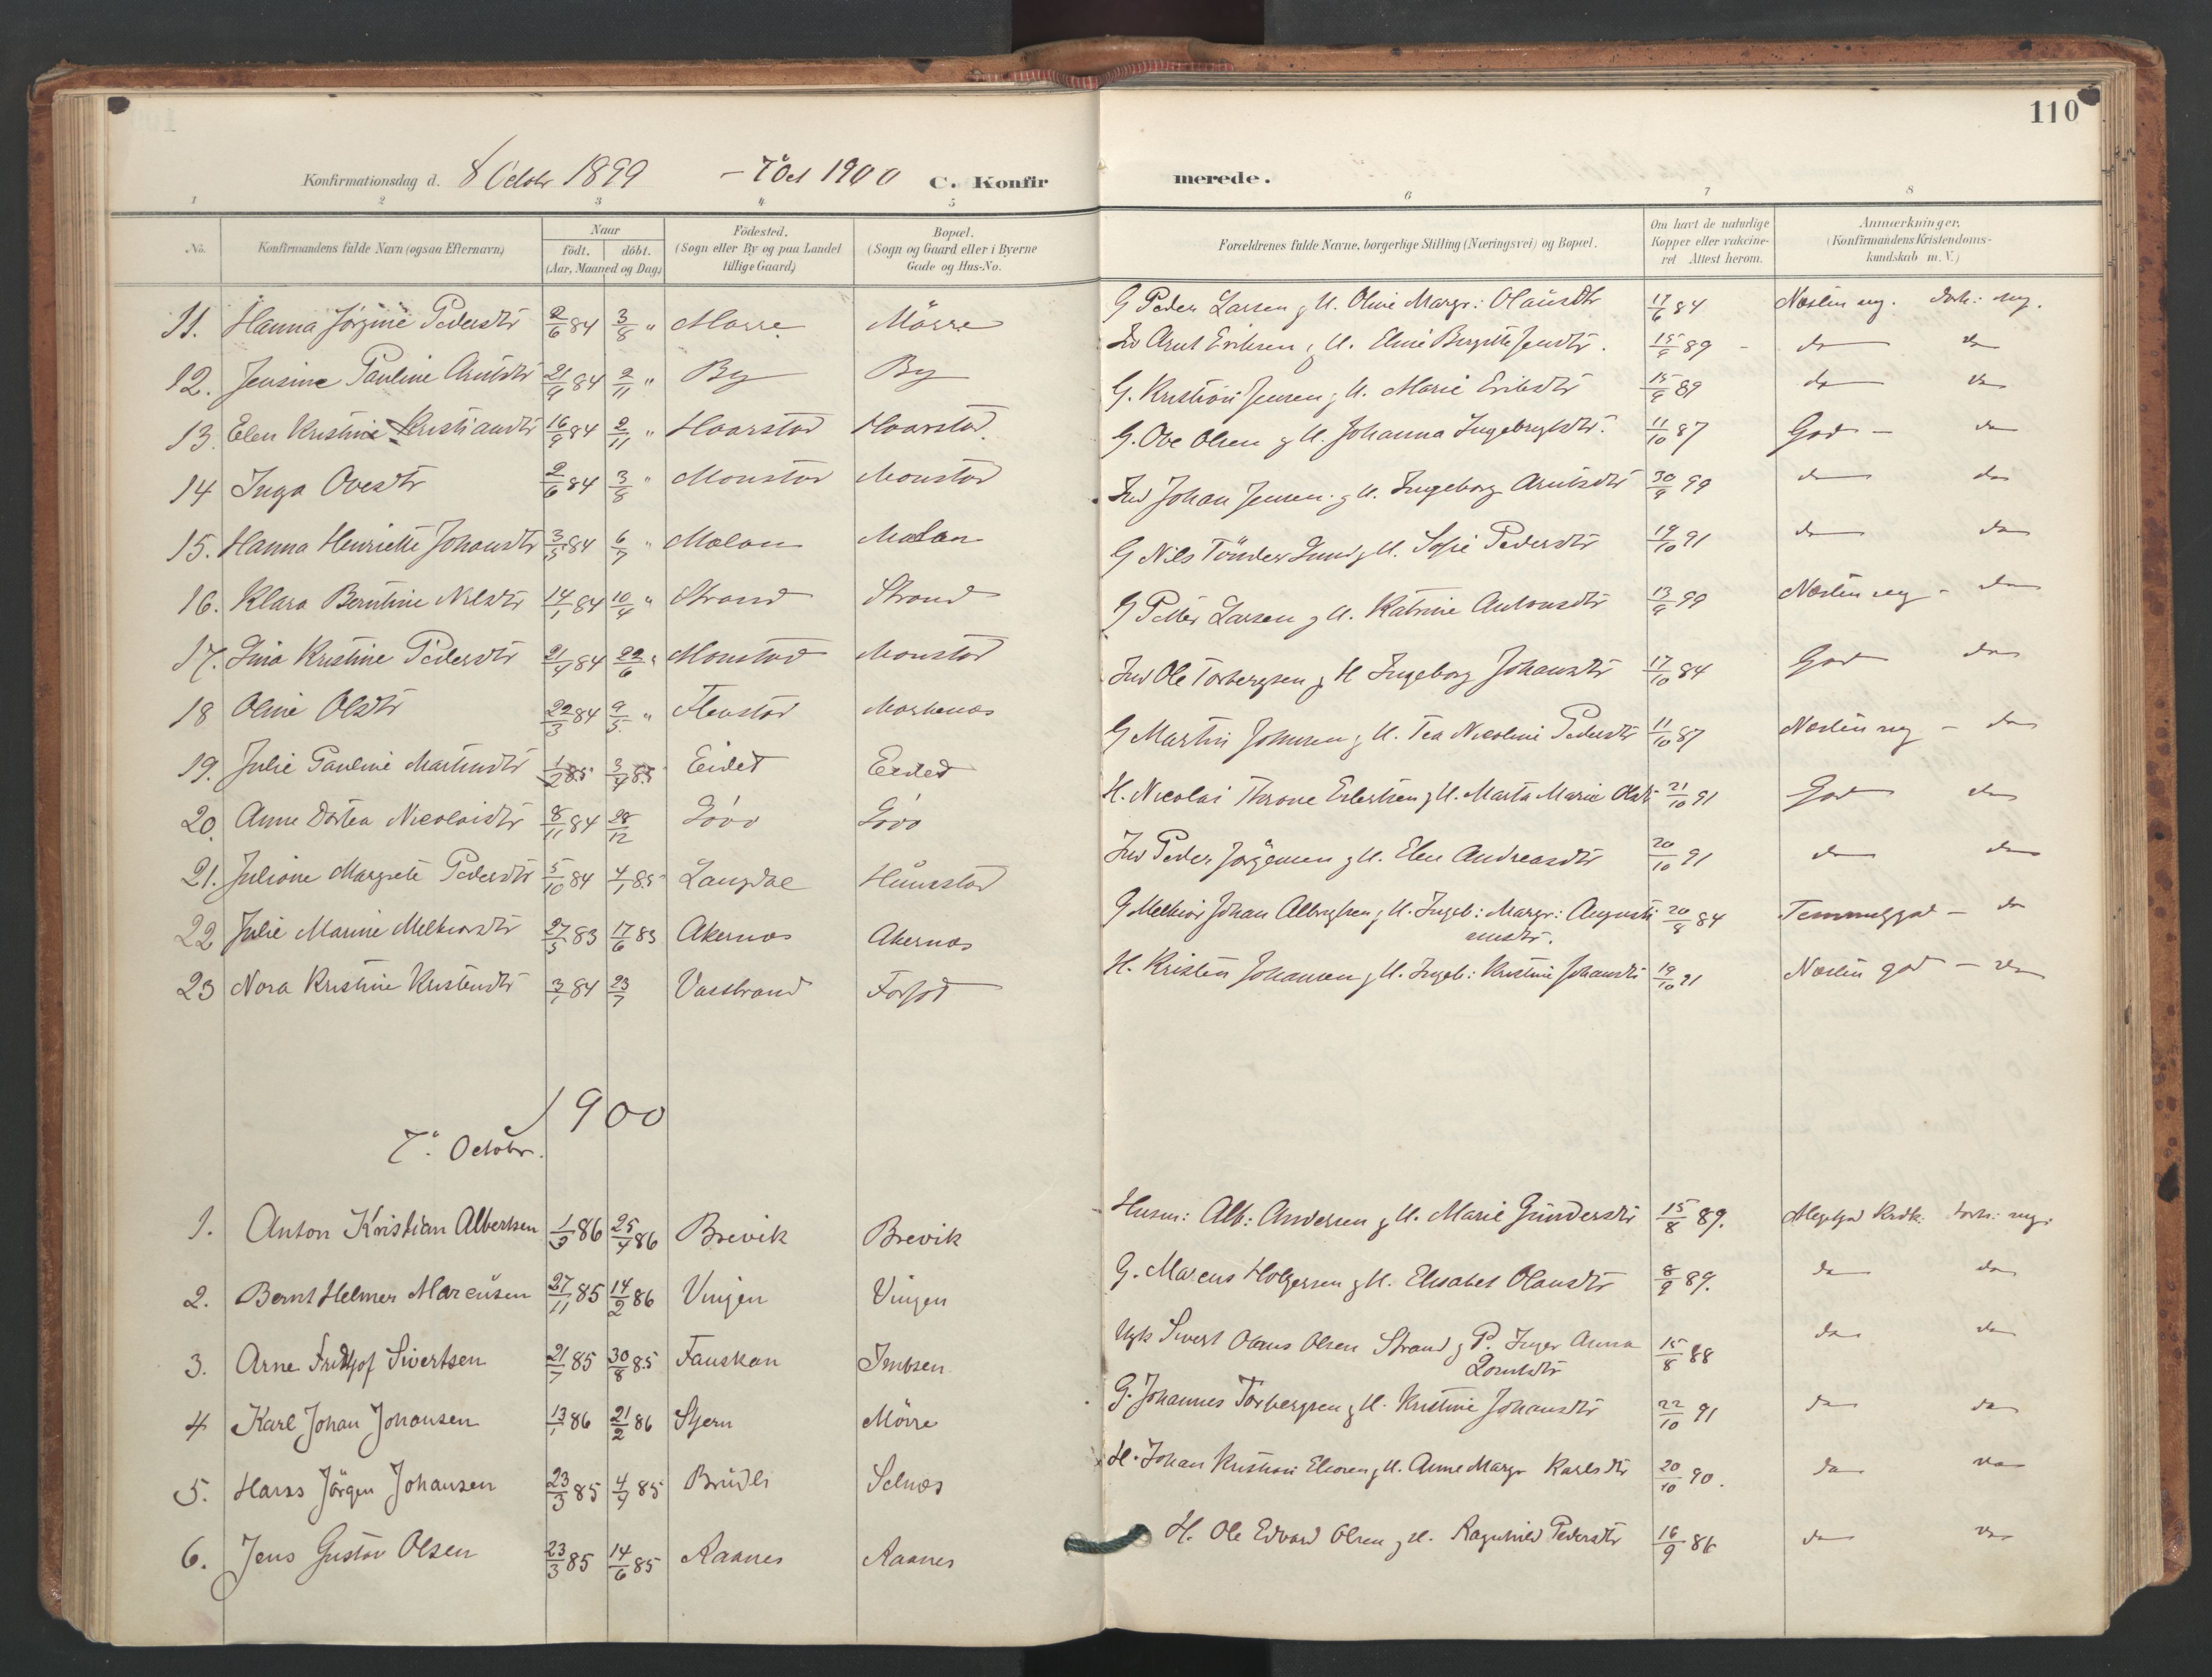 110
Konfirmationsdag d. 8 Octobr 1899 - 7 Oct 1900 C. Konfirmerede.
1 2 3 4 5 6 7 8
No. Konfirmandens fulde Navn (ogsaa Efternavn) Naar födt. döbt. (Aar, Maaned og Dag) Födested. (Sogn eller By og paa Landet tillige Gaard) Bopæl. (Sogn og Gaard eller i Byerne Gade og Hus-No. Forældrenes fulde Navne, borgerlige Stilling (Næringsvei) og Bopæl. Om havt de naturlige Kopper eller vakcineret Attest herom. Anmærkninger, (Konfirmandens Kristendomskundskab m. V.)
11. Hanna Jørgine Pedersdtr 2/6 84 3/8 " Mørre Mørre G Peder Larsen g H. Oline Margr: Olausdtr 17/6 84 Næsten mg. Forh: mg.
12. Jensine Pauline Arntsdtr 21/9 84 2/11 " By By Arnt Eriksen g H. Eline Birgitte Jensdtr. 15/9 89 - do do
13. Elen Kristine Kristiansdtr 16/9 84 2/11 " Haarstad Haarstad G. Kristian Jensen g H. Marie Eriksdtr 15/9 89 do do
14 Inga Ovesdtr 2/6 84 3/8 " Monstad Monstad G. Ove Olsen g H. Johanna Ingebrigtsdtr. 11/10 87 God - do
15. Hanna Henriette Johansdtr 3/5 84 6/7 " Mælan Mælan Ind Johan Jensen g H. Ingeborg Arntsdtr 30/9 99 do do
16. Klara Berntine Nilsdtr 14/1 84 10/4 " Strand Strand G Nils Tönder Lund g H. Sofie Pedersdtr 19/10 91 do do
17. Lina Kristine Pedersdtr 21/4 84 22/6 " Monstad Monstad G Petter Larsen g H. Katrine Antonsdtr 13/9 99 Næsten mg - do
18 Oline Olsdtr 22/3 84 9/5 " Flenstad Markenæs Ind Ole Torbergsen g H Ingeborg Johansdtr 17/10 84 God do
19. Julie Pauline Martinsdtr 1/2 85 3/4 85 Eidet Eidet G Martin Johnsen g H. Tea Nicoline Pedersdtr 11/10 87 Næsten mg - do
20. Anne Dortea Nicolaisdtr 8/11 84 28/12 H. Nicolai Throne Ellertsen g H. Marta Marie Olsdtr 21/10 91 God do
21. Juliane Margrete Pedersdtr 5/10 84 4/1 85 Langdal Hünnstad Ind Peder Jørgensen g H. Elen Andreasdtr 20/10 91 do do
22 Julie Marine Melkiorsdtr 27/5 83 17/6 83 Akernæs Akernæs G Melkior Johan Albrigtsen g H. Ingeb: Margr: Augustinusdtr. 20/8 84 Temmeliggod - do
23 Nora Kristine Kristensdtr 3/1 84 23/7 Vasstrand Forfod H. Kristen Johansen g H. Ingeb: Kristine Johansdtr 19/10 91 Næsten god - do
1900
7. Octobr.
1. Anton Kristian Albertsen 1/3 86 25/4 86 Brevik Brevik Husm: Alb: Andersen g H. Marie Gundersdtr 15/8 89. Megetgod Krdk: Forh: mg.
2. Bernt Helmer Marcüsen 27/11 85 14/2 86 Vingen Vingen G. Marcus Holgersen g H. Elisabet Olausdtr 8/9 89. do do
3. Arne Fridtjof Sivertsen 21/7 85 30/8 85 Fauskan Imbsen Ugk Sivert Olaus Olsen Strand g P. Inger Anna 15/8 88 do do
4 Karl Johan Johansen 13/1 86 21/2 86 Stjern Mörre G. Johannes Torbergsen g H. Kristine Johansdtr 22/10 91 do do
5. Hans Jörgen Johansen 23/3 85 4/9 85 Brüdli Selnæs H. Johan Kristian g H. Anne Margr Karlsdtr 20/10 90. do do
6. Jens Gustav Olsen 23/3 85 14/6 85 Raanes Raanes H. Ole Edvard Olsen g H. Ragnhild Pedersdtr 16/9 86 do do